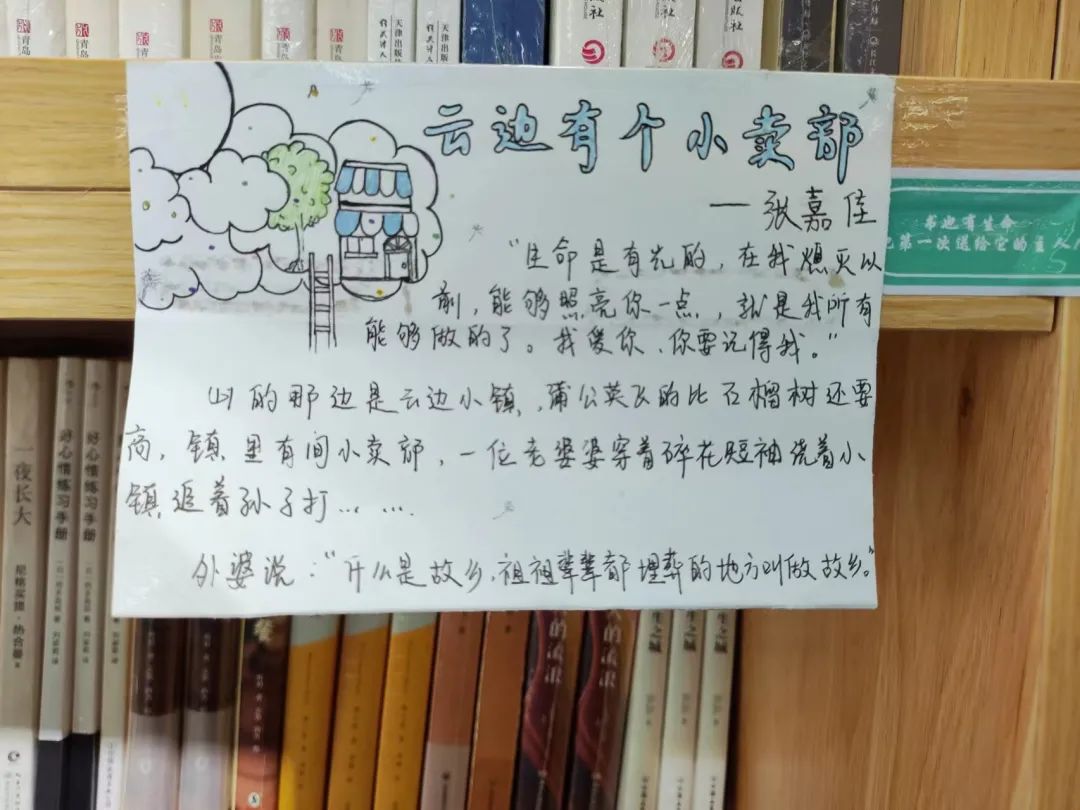 云边有个小卖部
— 张嘉佳
“生命是有光的，在我熄灭以
前，能够照亮你一点，就是我所有
能够做的了。我爱你，你要记得我。”
山的那边是云边小镇，蒲公英飞的比石榴树还要
高，镇里有间小卖部，一位老婆婆穿着碎花短袖绕着小
镇追着孙子打……
外婆说：“什么是故乡，祖祖辈辈都埋葬的地方叫做故乡。”
书也有生命
第一次送给它的主人
青岛
青岛
青岛
青岛
青岛
青岛
天津出版
天津出版
一夜长大
好心情练习手册
好心情练习手册
的流浪
的流浪
生之城
生之城
生之城